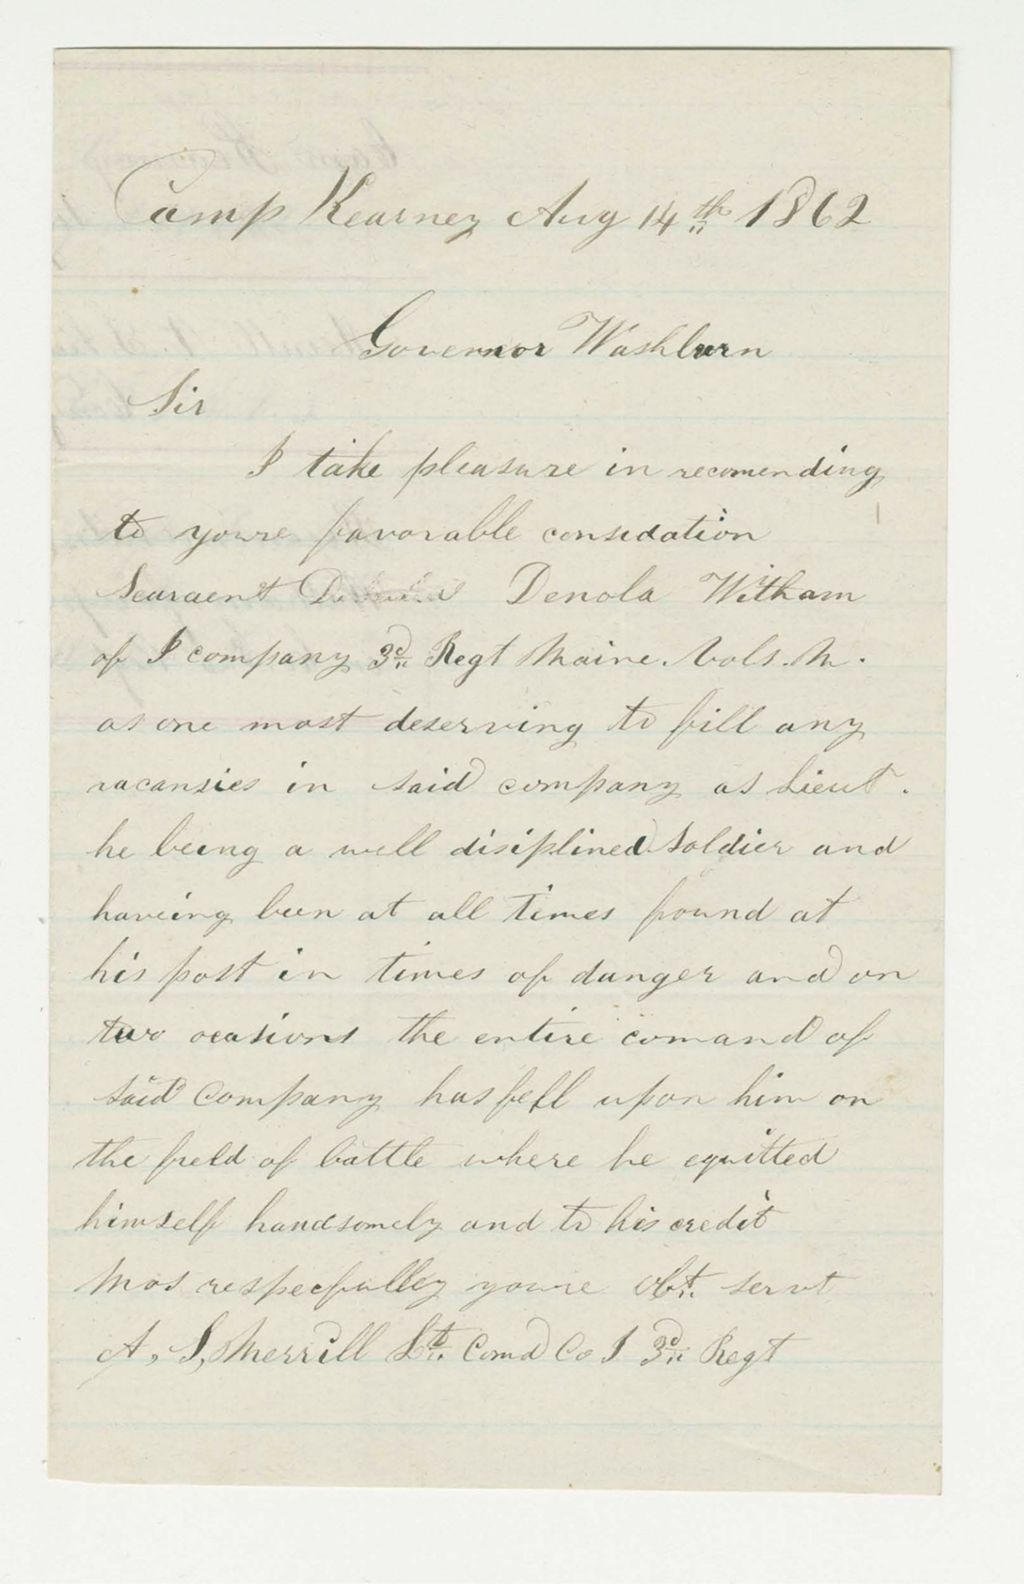 Camp Kearney Aug 14th 1862
Governor Washburn
Sir
I take pleasure in recomending
to youre favorable considation
Searaent Denola Witham
of I company 3d Regt Maine. Vols. M.
as one most deserving to fill any
vacansies in said company as Lieut.
he being a well disiplined soldier and
haveing been at all times found at
his post in times of danger and on
two ocasions the entire comand of
said Company has fell upon him on
the field of battle where he equitted
himself handsomely and to his credit
Mos respecfulley youre Obt. servt
A, S, Merrill Lt. Comd Co I 3d Regt